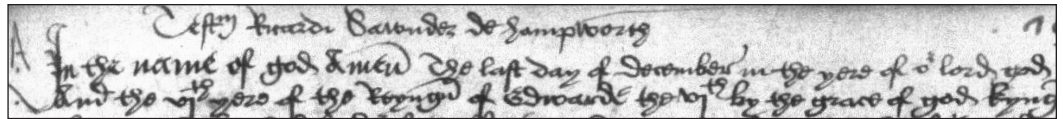 Testm Ricardi Sawnder de hampworth
In the name of god Amen The last day of december in the yere of or lord god
And the vith yere of the Reyng of Edwarde the vith by the grace of god kyng